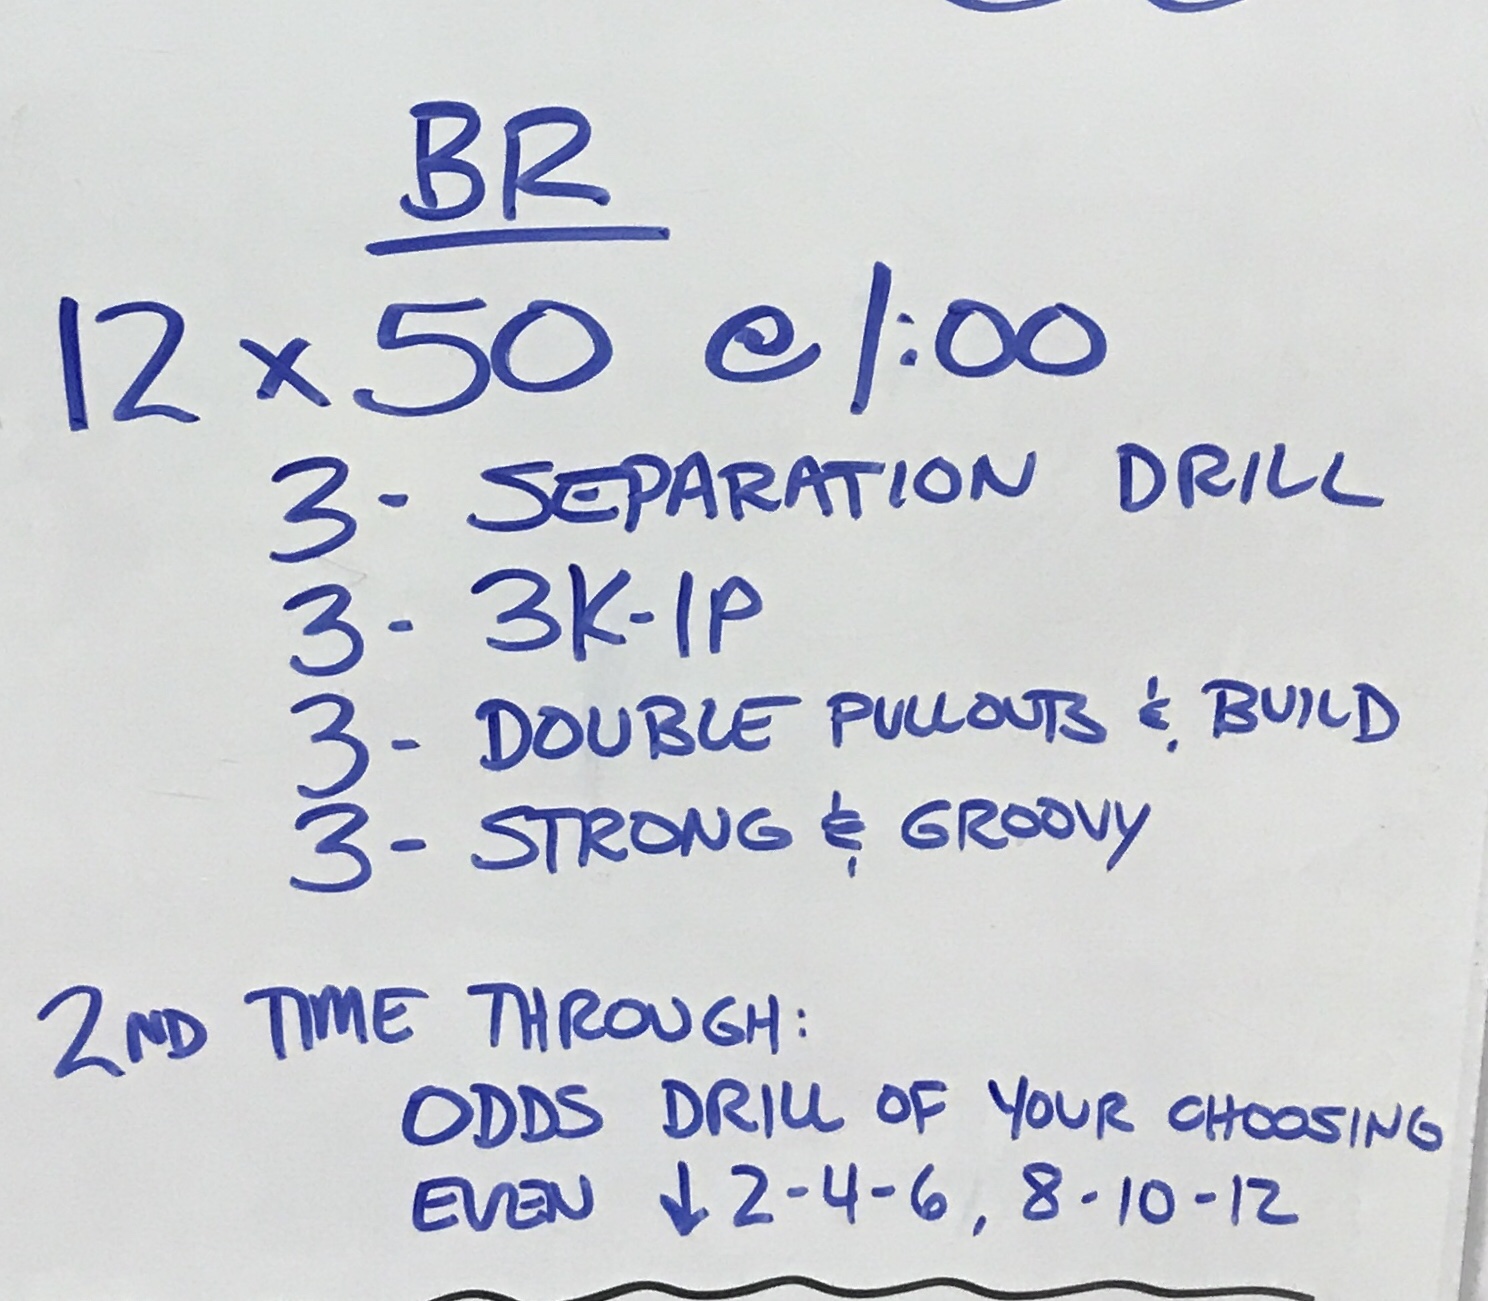 BR
12 x 50 @ 1:00
3 - SEPARATION DRILL
3 - 3K-1P
3 - DOUBLE PULLOUTS & BUILD
3 - STRONG & GROOVY
2ND TIME THROUGH:
ODDS DRILL OF YOUR CHOOSING
EVEN ↓ 2-4-6, 8-10-12